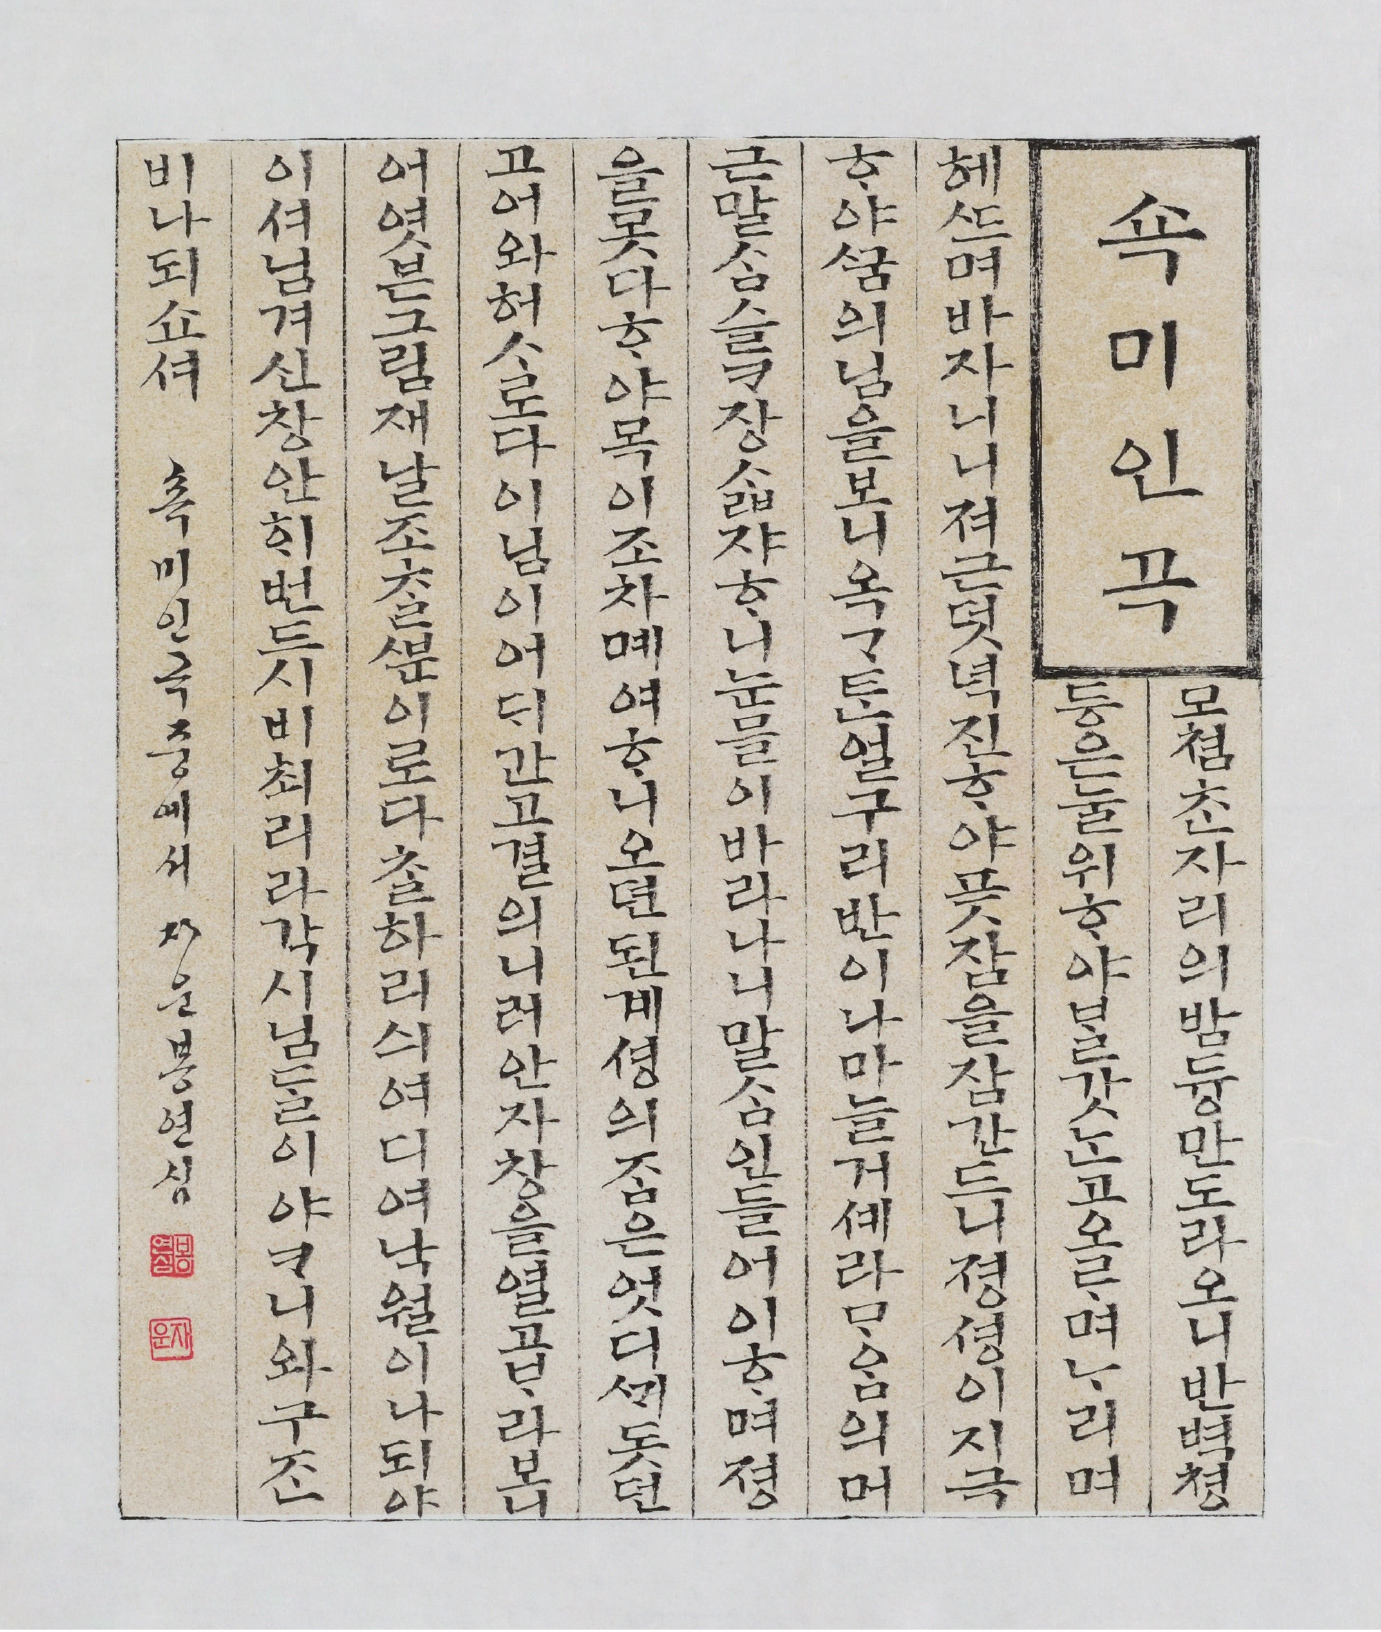 쇽미인곡
모쳠ᄎᆞᆫ자리의밤듕만도라오니반벽쳥
등은눌위ᄒᆞ야ᄇᆞᆯ갓ᄂᆞᆫ고오ᄅᆞ며ᄂᆞ리며
헤ᄯᅳ며바자니니져근덧녁진ᄒᆞ야픗잠을잠간드니졍셩이지극
ᄒᆞ야ᄭᅮᆷ의님을보니옥ᄀᆞᄐᆞᆫ얼구리반이나마늘거셰라ᄆᆞᄋᆞᆷ의머
근말ᄉᆞᆷ슬ᄏᆞ장ᄉᆞᆲ쟈ᄒᆞ니눈믈이바라나니말ᄉᆞᆷ인들어이ᄒᆞ며졍
을못다ᄒᆞ야목이조차몌여ᄒᆞ니오뎐된계셩의ᄌᆞᆷ은엇디ᄭᆡ돗던
고어와허ᄉᆞ로다이님이어ᄃᆡ간고결의니러안자창을열고ᄇᆞ라보니
어엿븐그림재날조ᄎᆞᆯᄲᅮᆫ이로다ᄎᆞᆯ하리싀여디여낙월이나되야
이셔님겨신창안ᄒᆡ번드시비최리라각시님ᄃᆞᆯ이야ᄏᆞ니와구ᄌᆞᆫ
비나되쇼셔 쇽미인곡중에서 자운봉연심
봉연심
자운